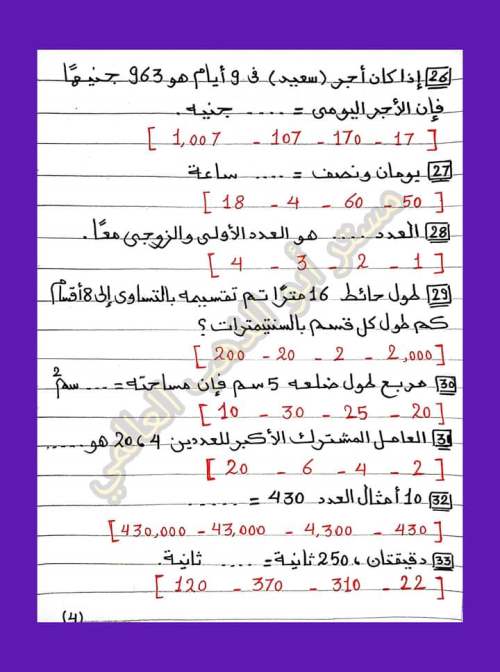 26 إذا كان أجر (سعيد) في 9 أيام هو 963 جنيهًا
فإن الأجر اليومى = .... جنيه.
[ 17 - 170 - 107 - 1,007 ]
27 يومان ونصف = .... ساعة
[ 50 - 60 - 4 - 18 ]
28 العدد .... هو العدد الأولى والزوجى معًا.
[ 1 - 2 - 3 - 4 ]
29 طول حائط 16 مترًا تم تقسيمه بالتساوى إلى 8 أقسام
كم طول كل قسم بالسنتيمترات؟
[ 2,000 - 2 - 20 - 200 ]
30 مربع طول ضلعه 5 سم فإن مساحته = .... سم2
[ 20 - 25 - 30 - 10 ]
31 العامل المشترك الأكبر للعددين 4 ، 20 هو .....
[ 2 - 4 - 6 - 20 ]
32 10 أمثال العدد 430 = ......
[ 430 - 4,300 - 43,000 - 430,000 ]
33 دقيقتان ، 250 ثانية = .... ثانية.
[ 22 - 310 - 370 - 120 ]
(4)
مستر أبو الدهب العالمي